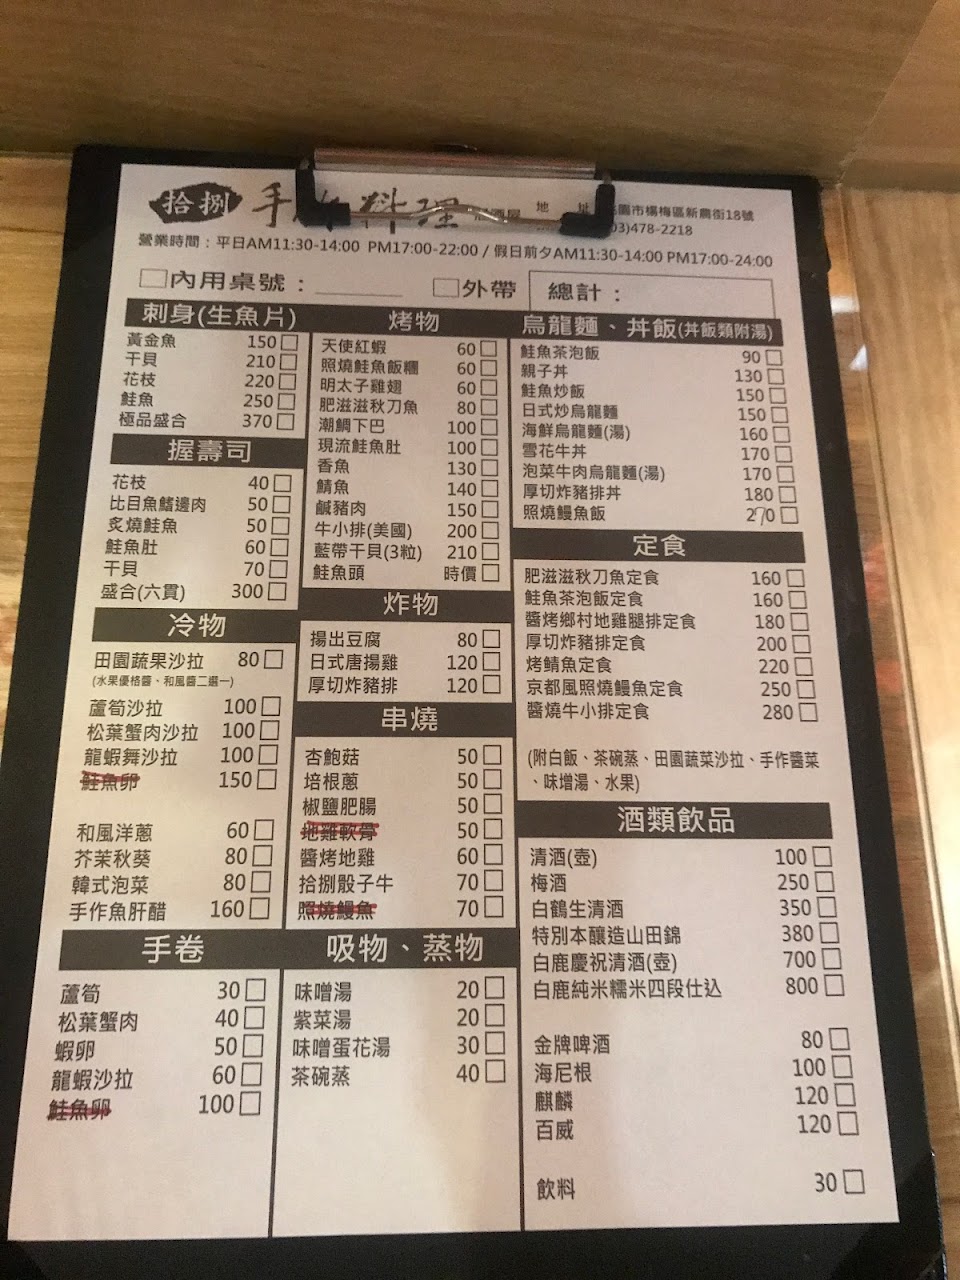 拾捌 手作料理 居酒屋
地 址 桃園市楊梅區新農街18號
03)478-2218
營業時間：平日AM11:30-14:00 PM17:00-22:00 / 假日前夕AM11:30-14:00 PM17:00-24:00
□內用桌號：________ □外帶 總計：
刺身(生魚片)
黃金魚 150□
干貝 210□
花枝 220□
鮭魚 250□
極品盛合 370□
握壽司
花枝 40□
比目魚鰭邊肉 50□
炙燒鮭魚 50□
鮭魚肚 60□
干貝 70□
盛合(六貫) 300□
冷物
田園蔬果沙拉 80□
(水果優格醬、和風醬二選一)
蘆筍沙拉 100□
松葉蟹肉沙拉 100□
龍蝦舞沙拉 100□
鮭魚卵 150□
和風洋蔥 60□
芥茉秋葵 80□
韓式泡菜 80□
手作魚肝醋 160□
手卷
蘆筍 30□
松葉蟹肉 40□
蝦卵 50□
龍蝦沙拉 60□
鮭魚卵 100□
烤物
天使紅蝦 60□
照燒鮭魚飯糰 60□
明太子雞翅 60□
肥滋滋秋刀魚 80□
潮鯛下巴 100□
現流鮭魚肚 100□
香魚 130□
鯖魚 140□
鹹豬肉 150□
牛小排(美國) 200□
藍帶干貝(3粒) 210□
鮭魚頭 時價□
炸物
揚出豆腐 80□
日式唐揚雞 120□
厚切炸豬排 120□
串燒
杏鮑菇 50□
培根蔥 50□
椒鹽肥腸 50□
地雞軟骨 50□
醬烤地雞 60□
拾捌骰子牛 70□
照燒鰻魚 70□
吸物、蒸物
味噌湯 20□
紫菜湯 20□
味噌蛋花湯 30□
茶碗蒸 40□
烏龍麵、丼飯(丼飯類附湯)
鮭魚茶泡飯 90□
親子丼 130□
鮭魚炒飯 150□
日式炒烏龍麵 150□
海鮮烏龍麵(湯) 160□
雪花牛丼 170□
泡菜牛肉烏龍麵(湯) 170□
厚切炸豬排丼 180□
照燒鰻魚飯 270□
定食
肥滋滋秋刀魚定食 160□
鮭魚茶泡飯定食 160□
醬烤鄉村地雞腿排定食 180□
厚切炸豬排定食 200□
烤鯖魚定食 220□
京都風照燒鰻魚定食 250□
醬燒牛小排定食 280□
(附白飯、茶碗蒸、田園蔬菜沙拉、手作醬菜
、味增湯、水果)
酒類飲品
清酒(壺) 100□
梅酒 250□
白鶴生清酒 350□
特別本釀造山田錦 380□
白鹿慶祝清酒(壺) 700□
白鹿純米糯米四段仕込 800□
金牌啤酒 80□
海尼根 100□
麒麟 120□
百威 120□
飲料 30□